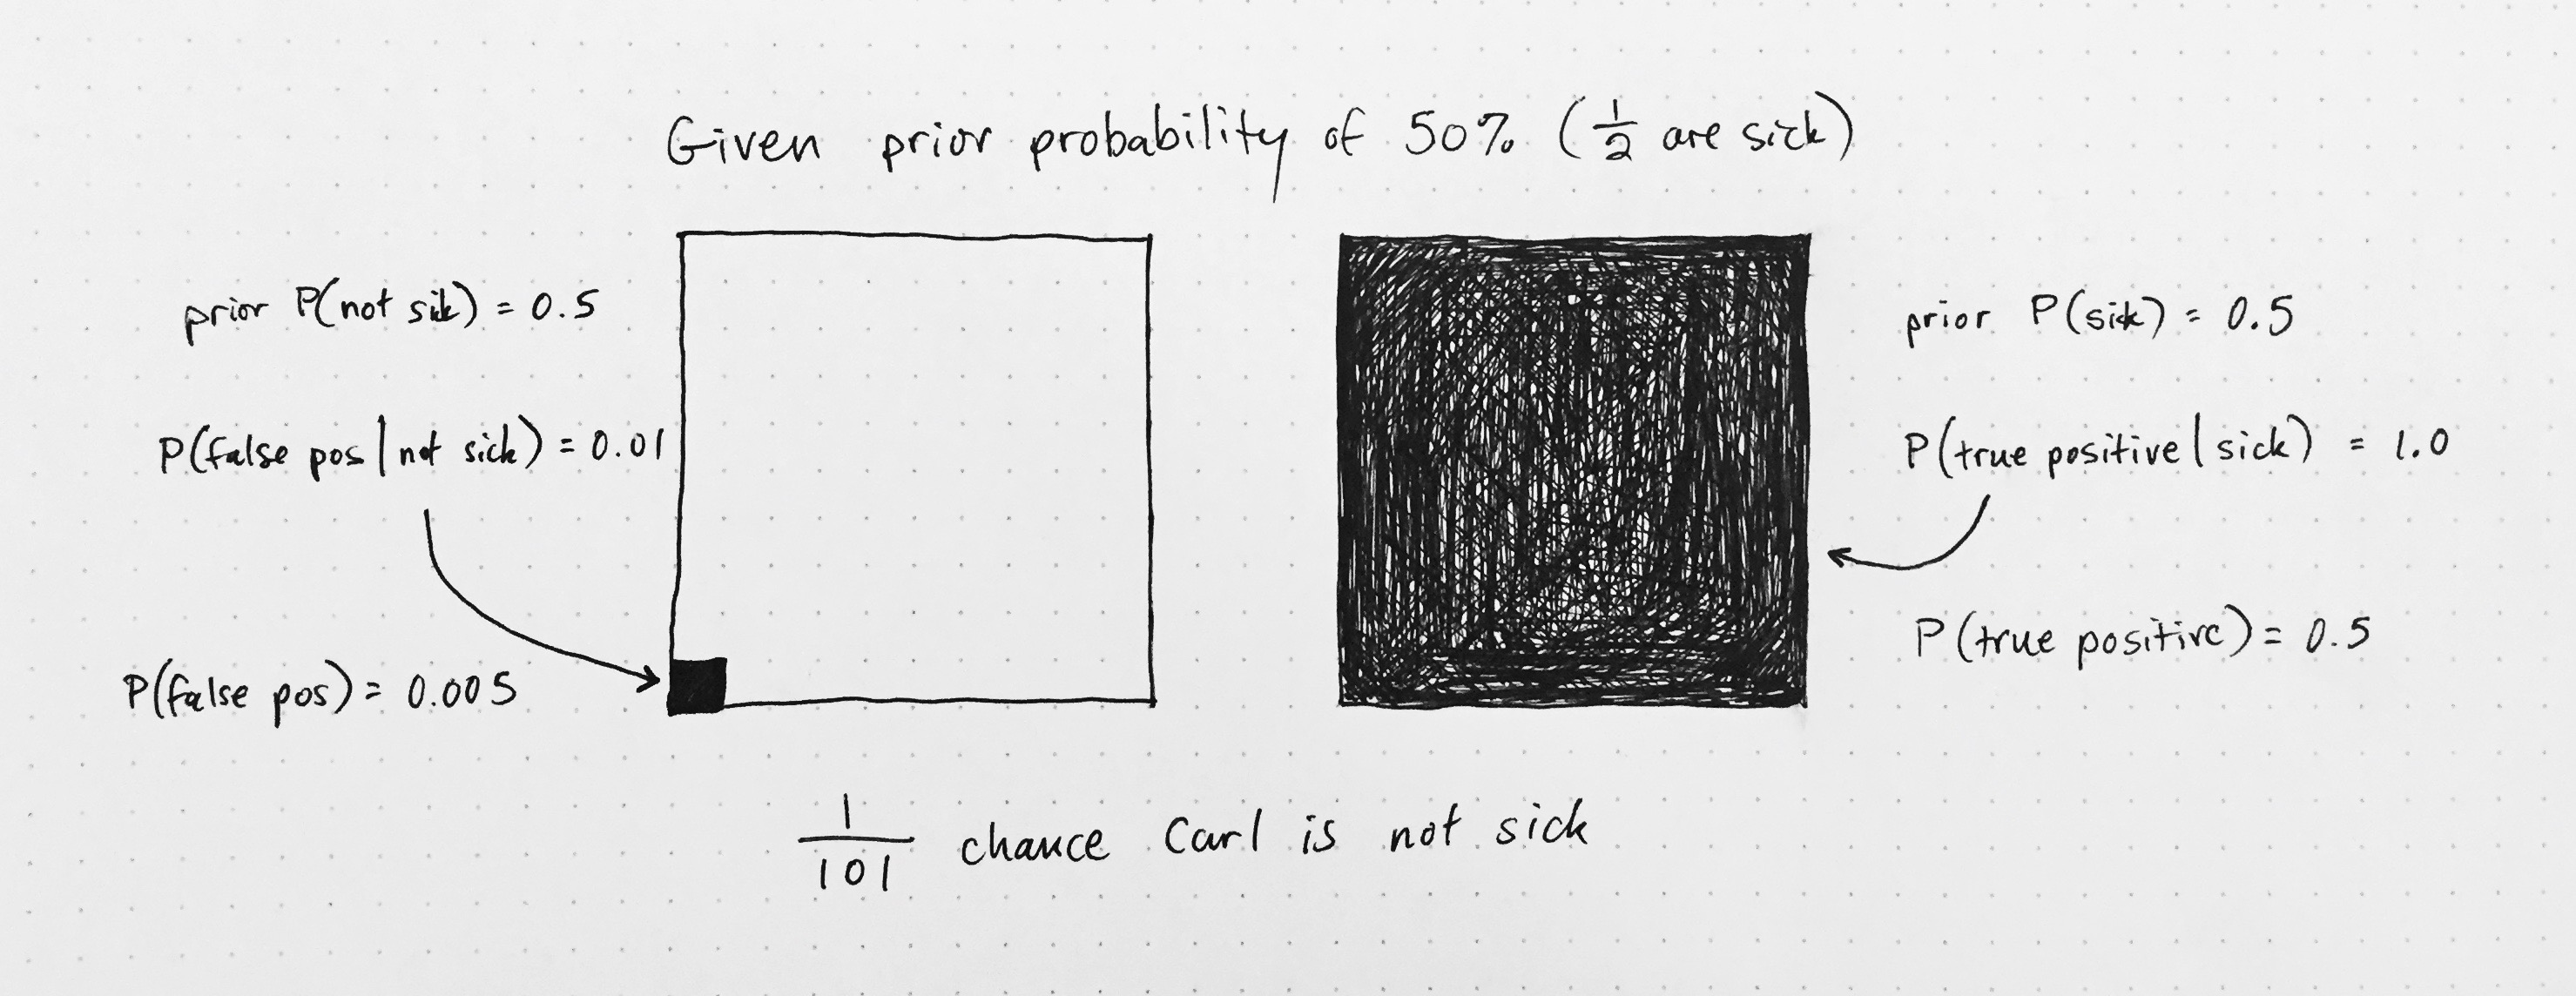 Given prior probability of 50% (1/2 are sick)
prior P(not sik) = 0.5
P(false pos | not sick) = 0.01
P(false pos) = 0.005
prior P(sick) = 0.5
P(true positive | sick) = 1.0
P(true positive) = 0.5
1/101 chance Carl is not sick